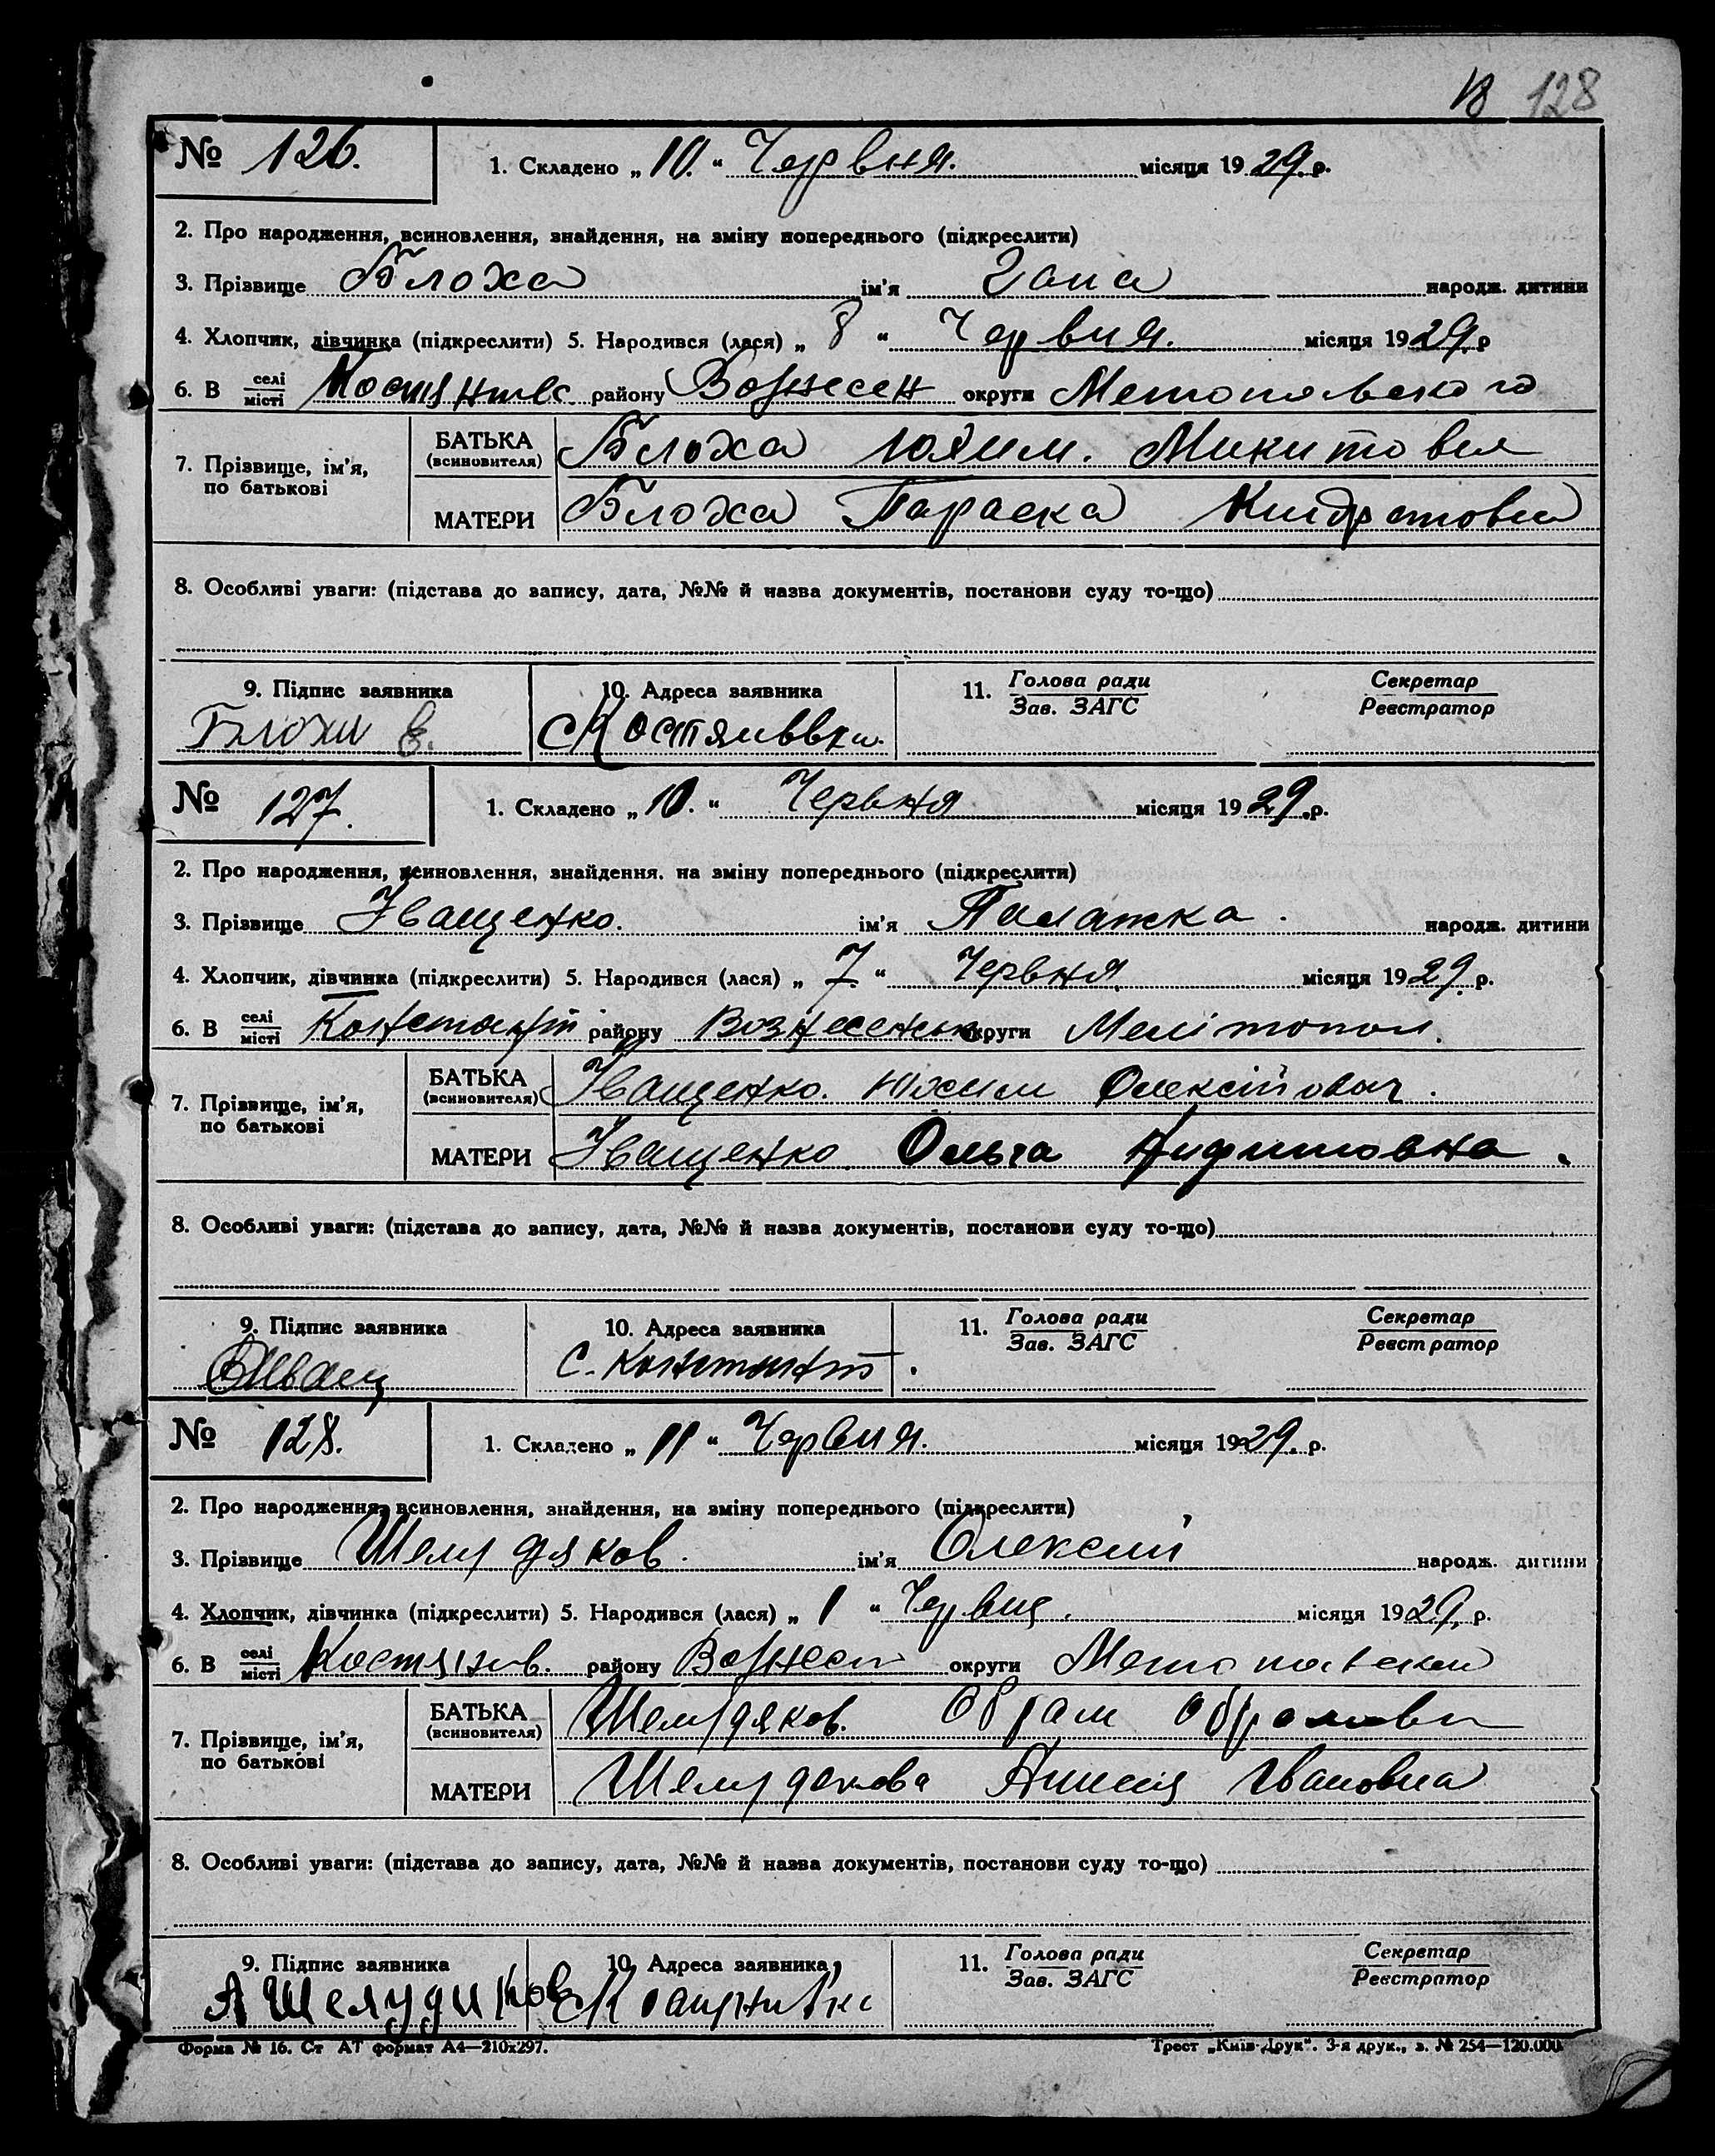 128
№ 126. 1. Складено „10.“ Червня. місяця 1929. р.
2. Про народження, всиновлення, знайдення, на зміну попереднього (підкреслити)
3. Прізвище Блоха ім'я народж. дитини
4. Хлопчик, дівчинка (підкреслити) 5. Народився (лася) „8“ Червня. місяця 1929. р
6. В селі місті району Вознесен округи
7. Прізвище, ім'я, по батькові
БАТЬКА (всиновителя) Блоха Юхим. Микитовия
МАТЕРИ Блоха Параска Киндратовна
8. Особливі уваги: (підстава до запису, дата, №№ й назва документів, постанови суду то-що)
9. Підпис заявника 10. Адреса заявника 11. Голова ради Секретар
Зав. ЗАГС Реєстратор
Блохи Е.
№ 127. 1. Складено „10.“ Червня місяця 1929. р.
2. Про народження, всиновлення, знайдення. на зміну попереднього (підкреслити)
3. Прізвище Іващенко. ім'я Палажка. народж. дитини
4. Хлопчик, дівчинка (підкреслити) 5. Народився (лася) „7.“ Червня. місяця 1929. р.
6. В селі місті Констант району Вознесенськ округи Мелітопол.
7. Прізвище, ім'я, по батькові
БАТЬКА (всиновителя) Іващенко. Юхим Олексійович.
МАТЕРИ Іващенко. Ольга
8. Особливі уваги: (підстава до запису, дата, №№ й назва документів, постанови суду то-що)
9. Підпис заявника 10. Адреса заявника 11. Голова ради Секретар
Зав. ЗАГС Реєстратор
С. Констант.
№ 128. 1. Складено „11“ Червня. місяця 1929. р.
2. Про народження, всиновлення, знайдення, на зміну попереднього (підкреслити)
3. Прізвище Шелудяков. ім'я Олексій народж. дитини
4. Хлопчик, дівчинка (підкреслити) 5. Народився (лася) „1“ Червня. місяця 1929. р.
6. В селі місті району округи
7. Прізвище, ім'я, по батькові
БАТЬКА (всиновителя) Шелудяков. Обрам
МАТЕРИ Шелудякова Ивановна
8. Особливі уваги: (підстава до запису, дата, №№ й назва документів, постанови суду то-що)
9. Підпис заявника 10. Адреса заявника 11. Голова ради Секретар
Зав. ЗАГС Реєстратор
А Шелудиков
Форма № 16. Ст АТ формат А4—210х297. Трест „Київ-Друк“. 3-я друк., з. № 254—120.000.